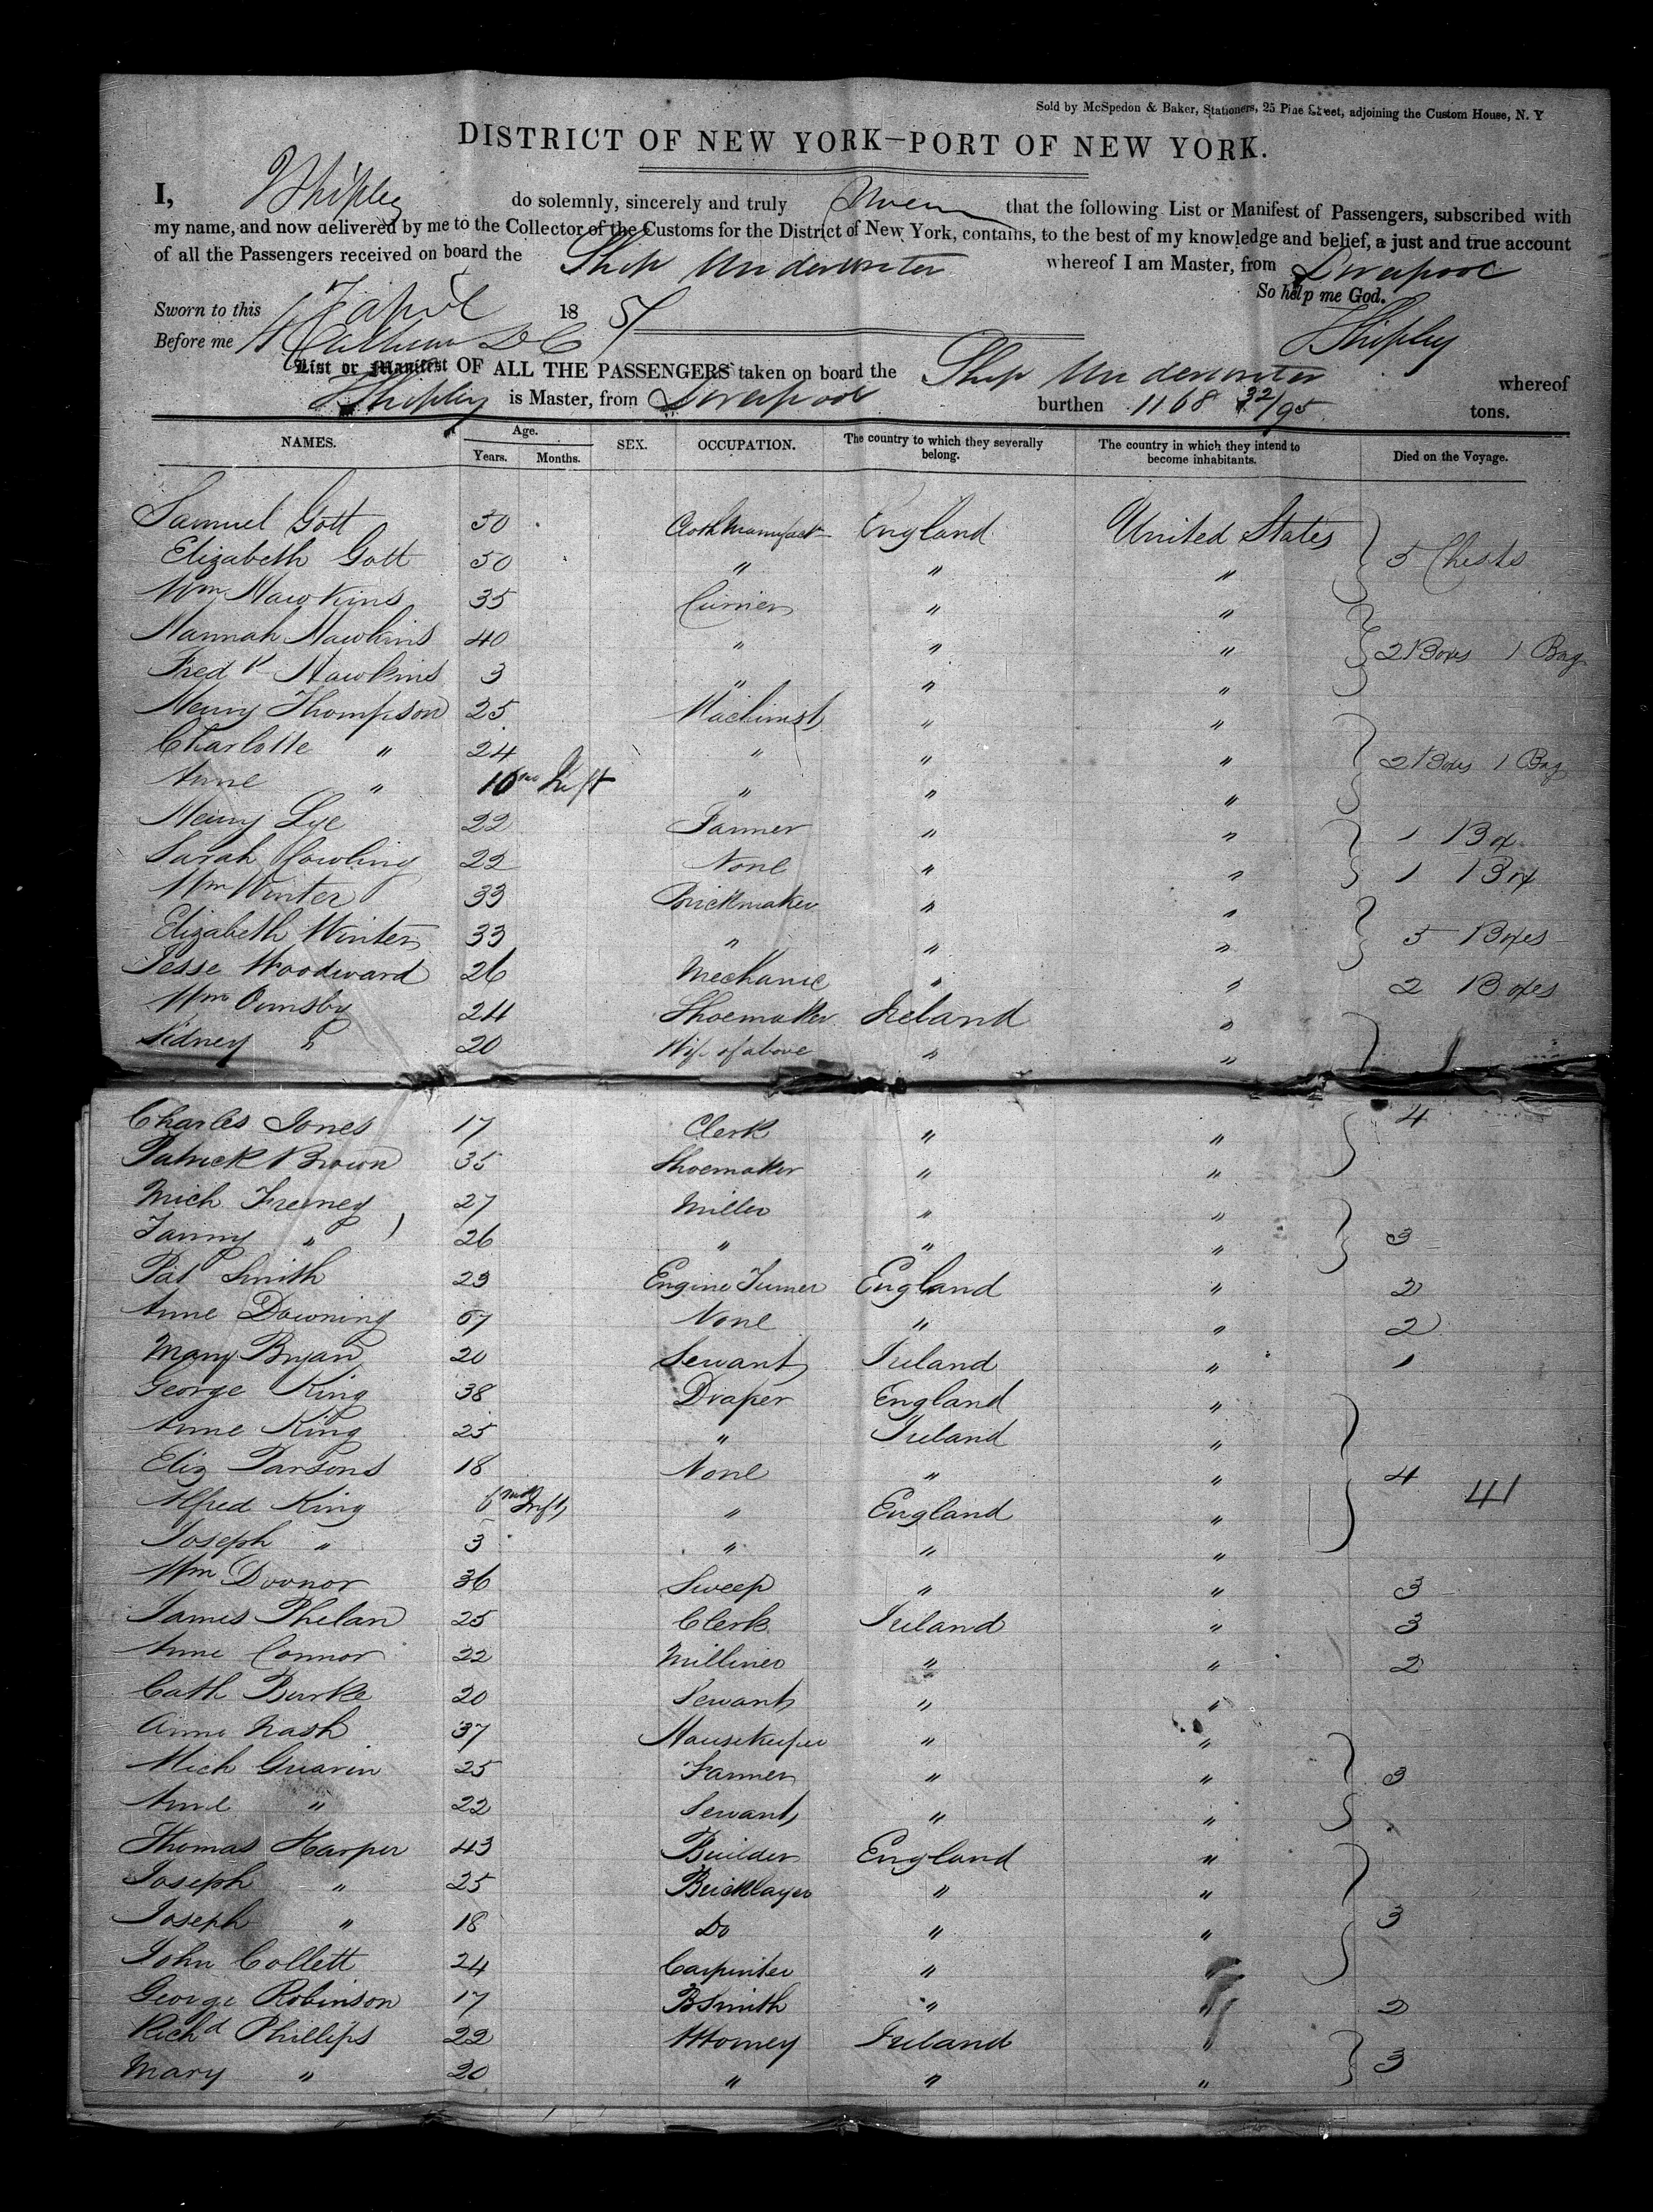 Sold by McSpedon & Baker, Stationers, 25 Pine Street, adjoining the Custom House, N. Y
DISTRICT OF NEW YORK—PORT OF NEW YORK.
I, Shipley do solemnly, sincerely and truly Swear that the following List or Manifest of Passengers, subscribed with
my name, and now delivered by me to the Collector of the Customs for the District of New York, contains, to the best of my knowledge and belief, a just and true account
of all the Passengers received on board the Ship Underwriter whereof I am Master, from Liverpool
So help me God.
Sworn to this 7 April 1851
Before me Shipley
List or Manifest OF ALL THE PASSENGERS taken on board the Ship Underwriter whereof
Shipley is Master, from Liverpool burthen 1168 32/95 tons.
NAMES. Age. SEX. OCCUPATION. The country to which they severally belong. The country in which they intend to become inhabitants. Died on the Voyage.
Years. Months.
Samuel Gott 50 Cloth Manufactr England United States
Elizabeth Gott 50 " " " 5 Chests
Wm Hawkins 35 Currier " "
Hannah Hawkins 40 " " " 2 Boxes 1 Bag
Fredk Hawkins 3 " " "
Henry Thompson 25 Machinist " "
Charlotte " 24 " " " 2 Boxes 1 Bag
Anne " 10 mo Inft " " "
Henry Lye 22 Farmer " " 1 Box
Sarah Cowling 22 None " " 1 Box
Wm Winter 33 Brickmaker " "
Elizabeth Winter 33 " " " 5 Boxes
Jesse Woodward 26 Mechanic " " 2 Boxes
Wm Ormsby 24 Shoemaker Ireland "
Sidney " 20 Wife of above " "
Charles Jones 17 Clerk " " 4
Patrick Brown 35 Shoemaker " "
Mich Freeney 27 Miller " "
Fanny " 26 " " " 3
Pat Smith 23 Engine Turner England " 2
Anne Downing 57 None " " 2
Mary Bryan 20 Servant Ireland " 1
George King 38 Draper England "
Anne King 25 " Ireland "
Eliz Parsons 18 None " " 4
Alfred King 6 mo Inft " England " 41
Joseph " 3 " " "
Wm Doonor 36 Sweep " " 3
James Phelan 25 Clerk Ireland " 3
Anne Connor 22 Milliner " " 2
Cath Burke 20 Servant " "
Anne Nash 37 Housekeeper " "
Mich Guavin 25 Farmer " " 3
Anne " 22 Servant " "
Thomas Harper 43 Builder England "
Joseph " 25 Bricklayer " "
Joseph " 18 Do " " 3
John Collett 24 Carpenter " "
George Robinson 17 BSmith " " 2
Richd Phillips 22 Attorney Ireland "
Mary " 20 " " " 3